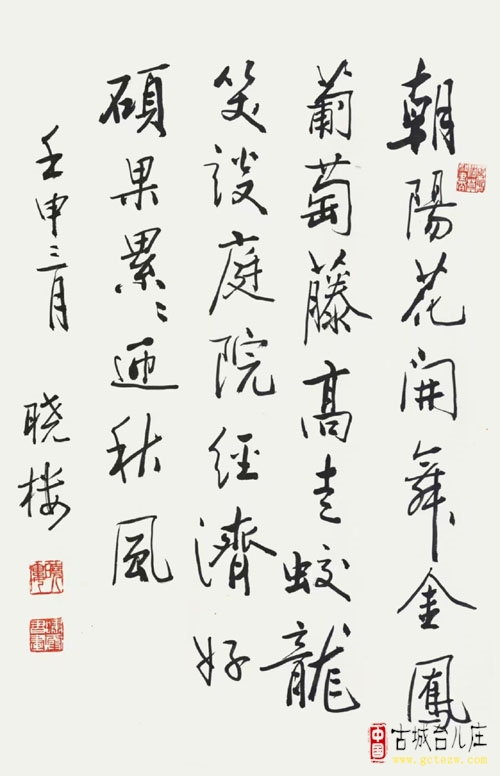 朝陽花開舞金鳳
葡萄藤高走蛟龍
笑談庭院經濟好
碩果累〻迎秋風
壬申三月
晓楼
中国
古城台儿庄
www.gctezw.com